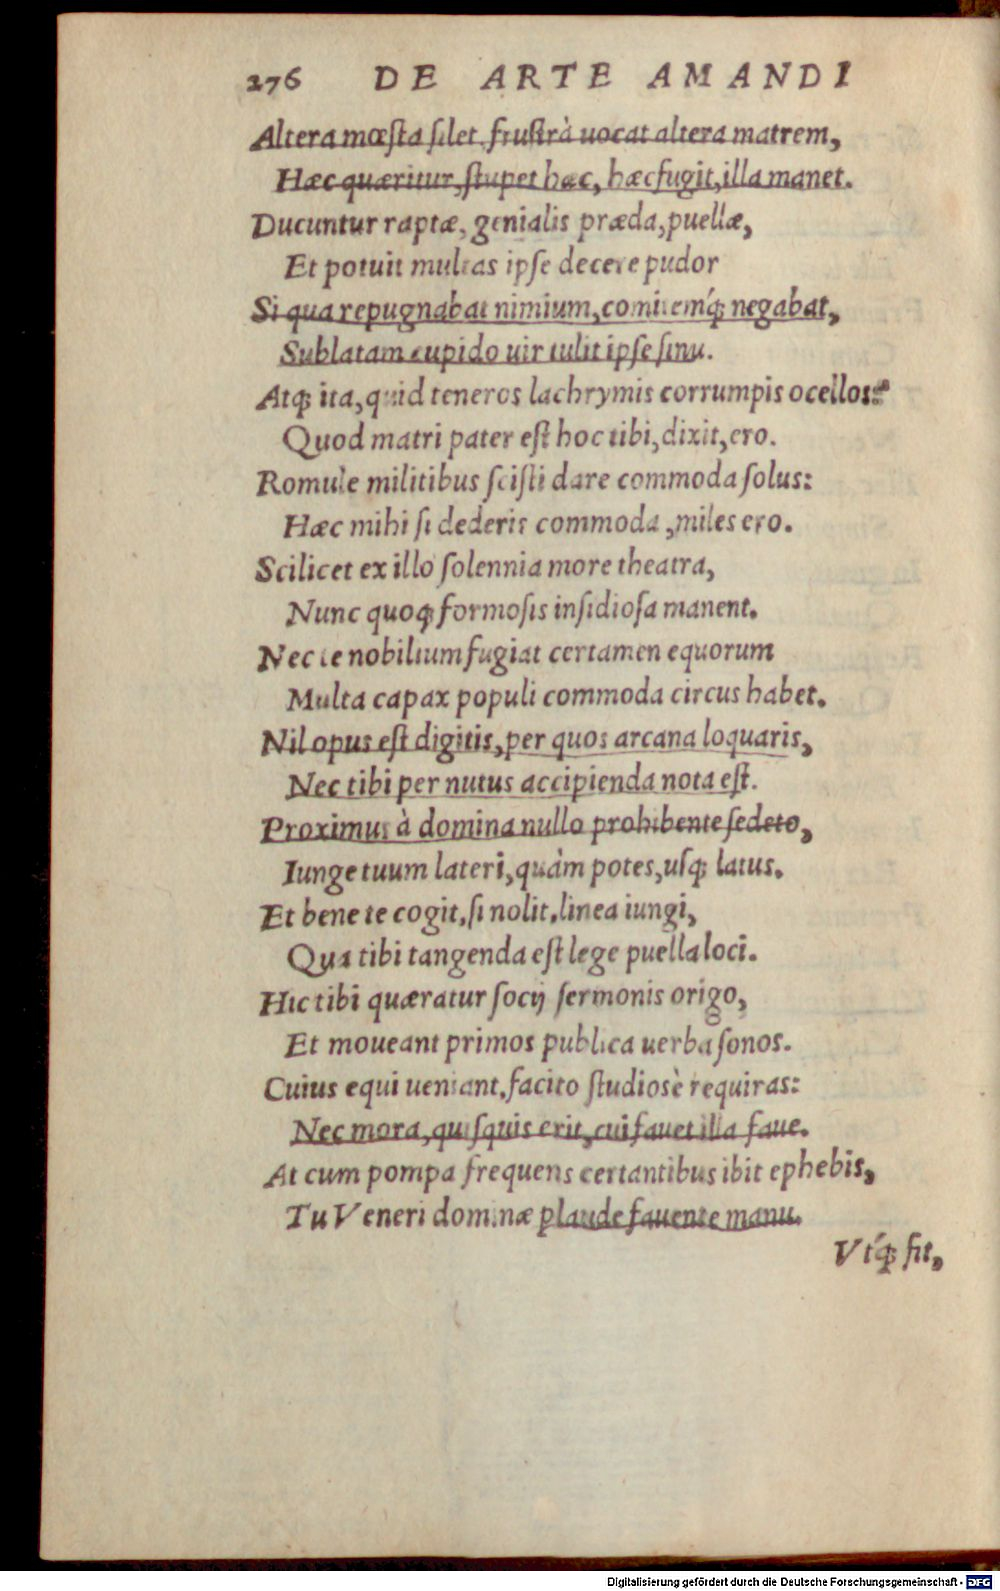 276 DE ARTE AMANDI
Altera mœſta ſilet, fruſtrà uocat altera matrem,
Hæc quæritur, ſtupet hæc, hæc fugit, illa manet.
Ducuntur raptæ, genialis præda, puellæ,
Et potuit multas ipſe decere pudor
Si qua repugnabat nimium, comitemq́; negabat,
Sublatam cupido uir tulit ipſe ſinu.
Atq; ita, quid teneros lachrymis corrumpis ocellos?
Quod matri pater eſt hoc tibi, dixit, ero.
Romule militibus ſciſti dare commoda ſolus:
Hæc mihi ſi dederis commoda, miles ero.
Scilicet ex illo ſolennia more theatra,
Nunc quoq; formoſis inſidioſa manent.
Nec te nobilium fugiat certamen equorum
Multa capax populi commoda circus habet.
Nil opus eſt digitis, per quos arcana loquaris,
Nec tibi per nutus accipienda nota eſt.
Proximus à domina nullo prohibente ſedeto,
Iunge tuum lateri, quàm potes, uſq; latus.
Et bene te cogit, ſi nolit, linea iungi,
Qua tibi tangenda eſt lege puella loci.
Hic tibi quæratur ſocij ſermonis origo,
Et moueant primos publica uerba ſonos.
Cuius equi ueniant, facito ſtudioſè requiras:
Nec mora, quiſquis erit, cui fauet illa faue.
At cum pompa frequens certantibus ibit ephebis,
Tu Veneri dominæ plaude fauente manu.
Vtq́; fit,
Digitalisierung gefördert durch die Deutsche Forschungsgemeinschaft - DFG